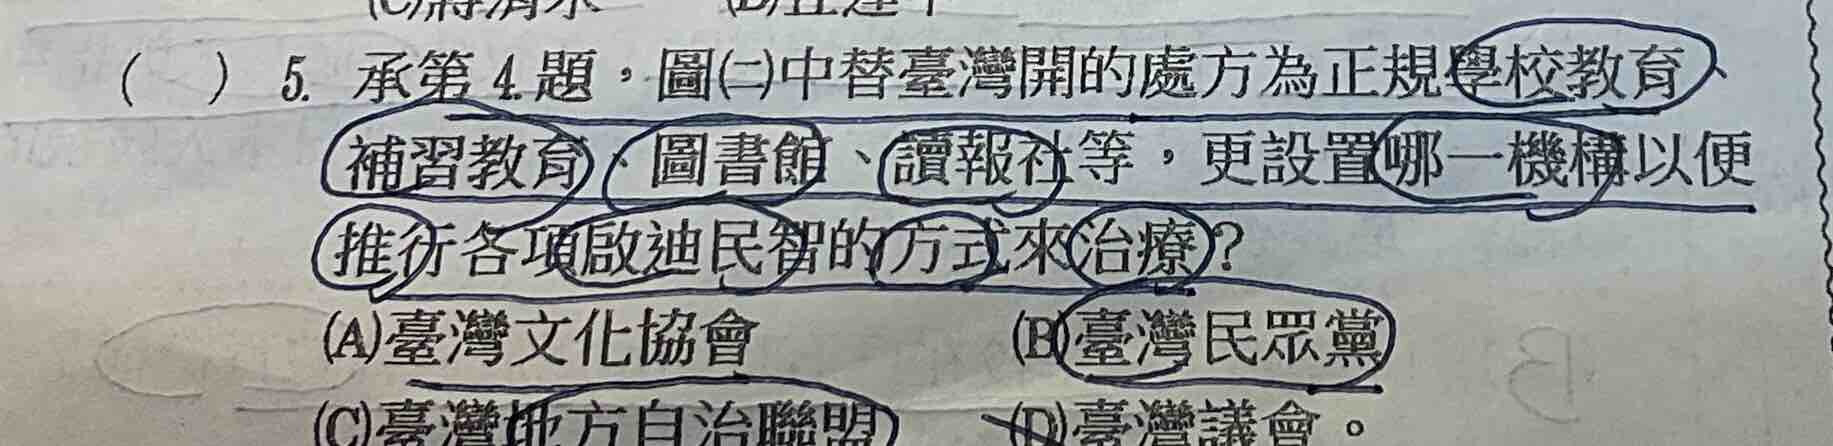 ( ) 5. 承第4.題，圖㈡中替臺灣開的處方為正規學校教育、
補習教育、圖書館、讀報社等，更設置哪一機構以便
推行各項啟迪民智的方式來治療？
(A)臺灣文化協會 (B)臺灣民眾黨
(C)臺灣地方自治聯盟 (D)臺灣議會。